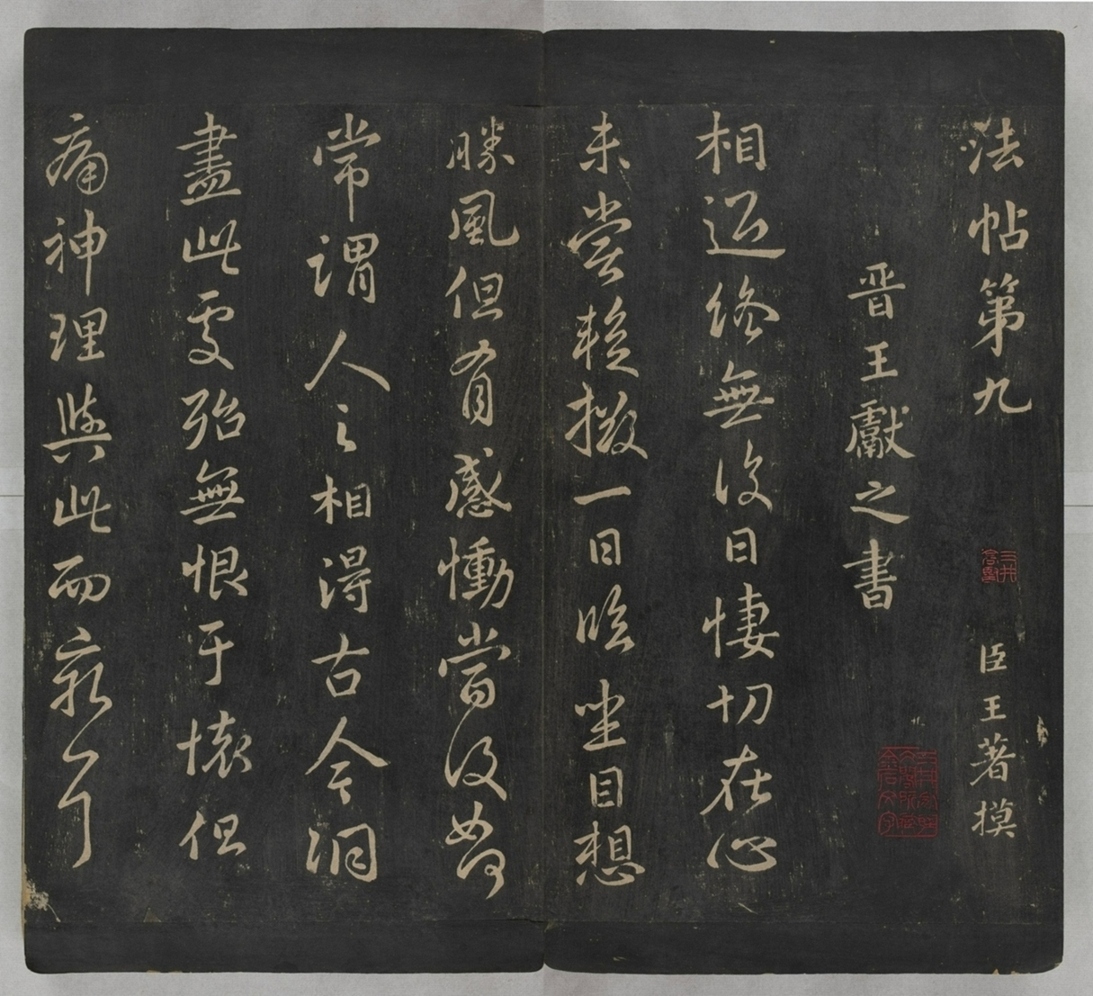 法帖第九 臣王著摸
晋王獻之書
相迎終無復日悽切在心
未嘗暫撥一日臨坐目想
勝風但有感慟當復如何
常謂人之相得古今洞
盡此處殆無恨于懷但
痛神理與此而窮耳
三井高堅